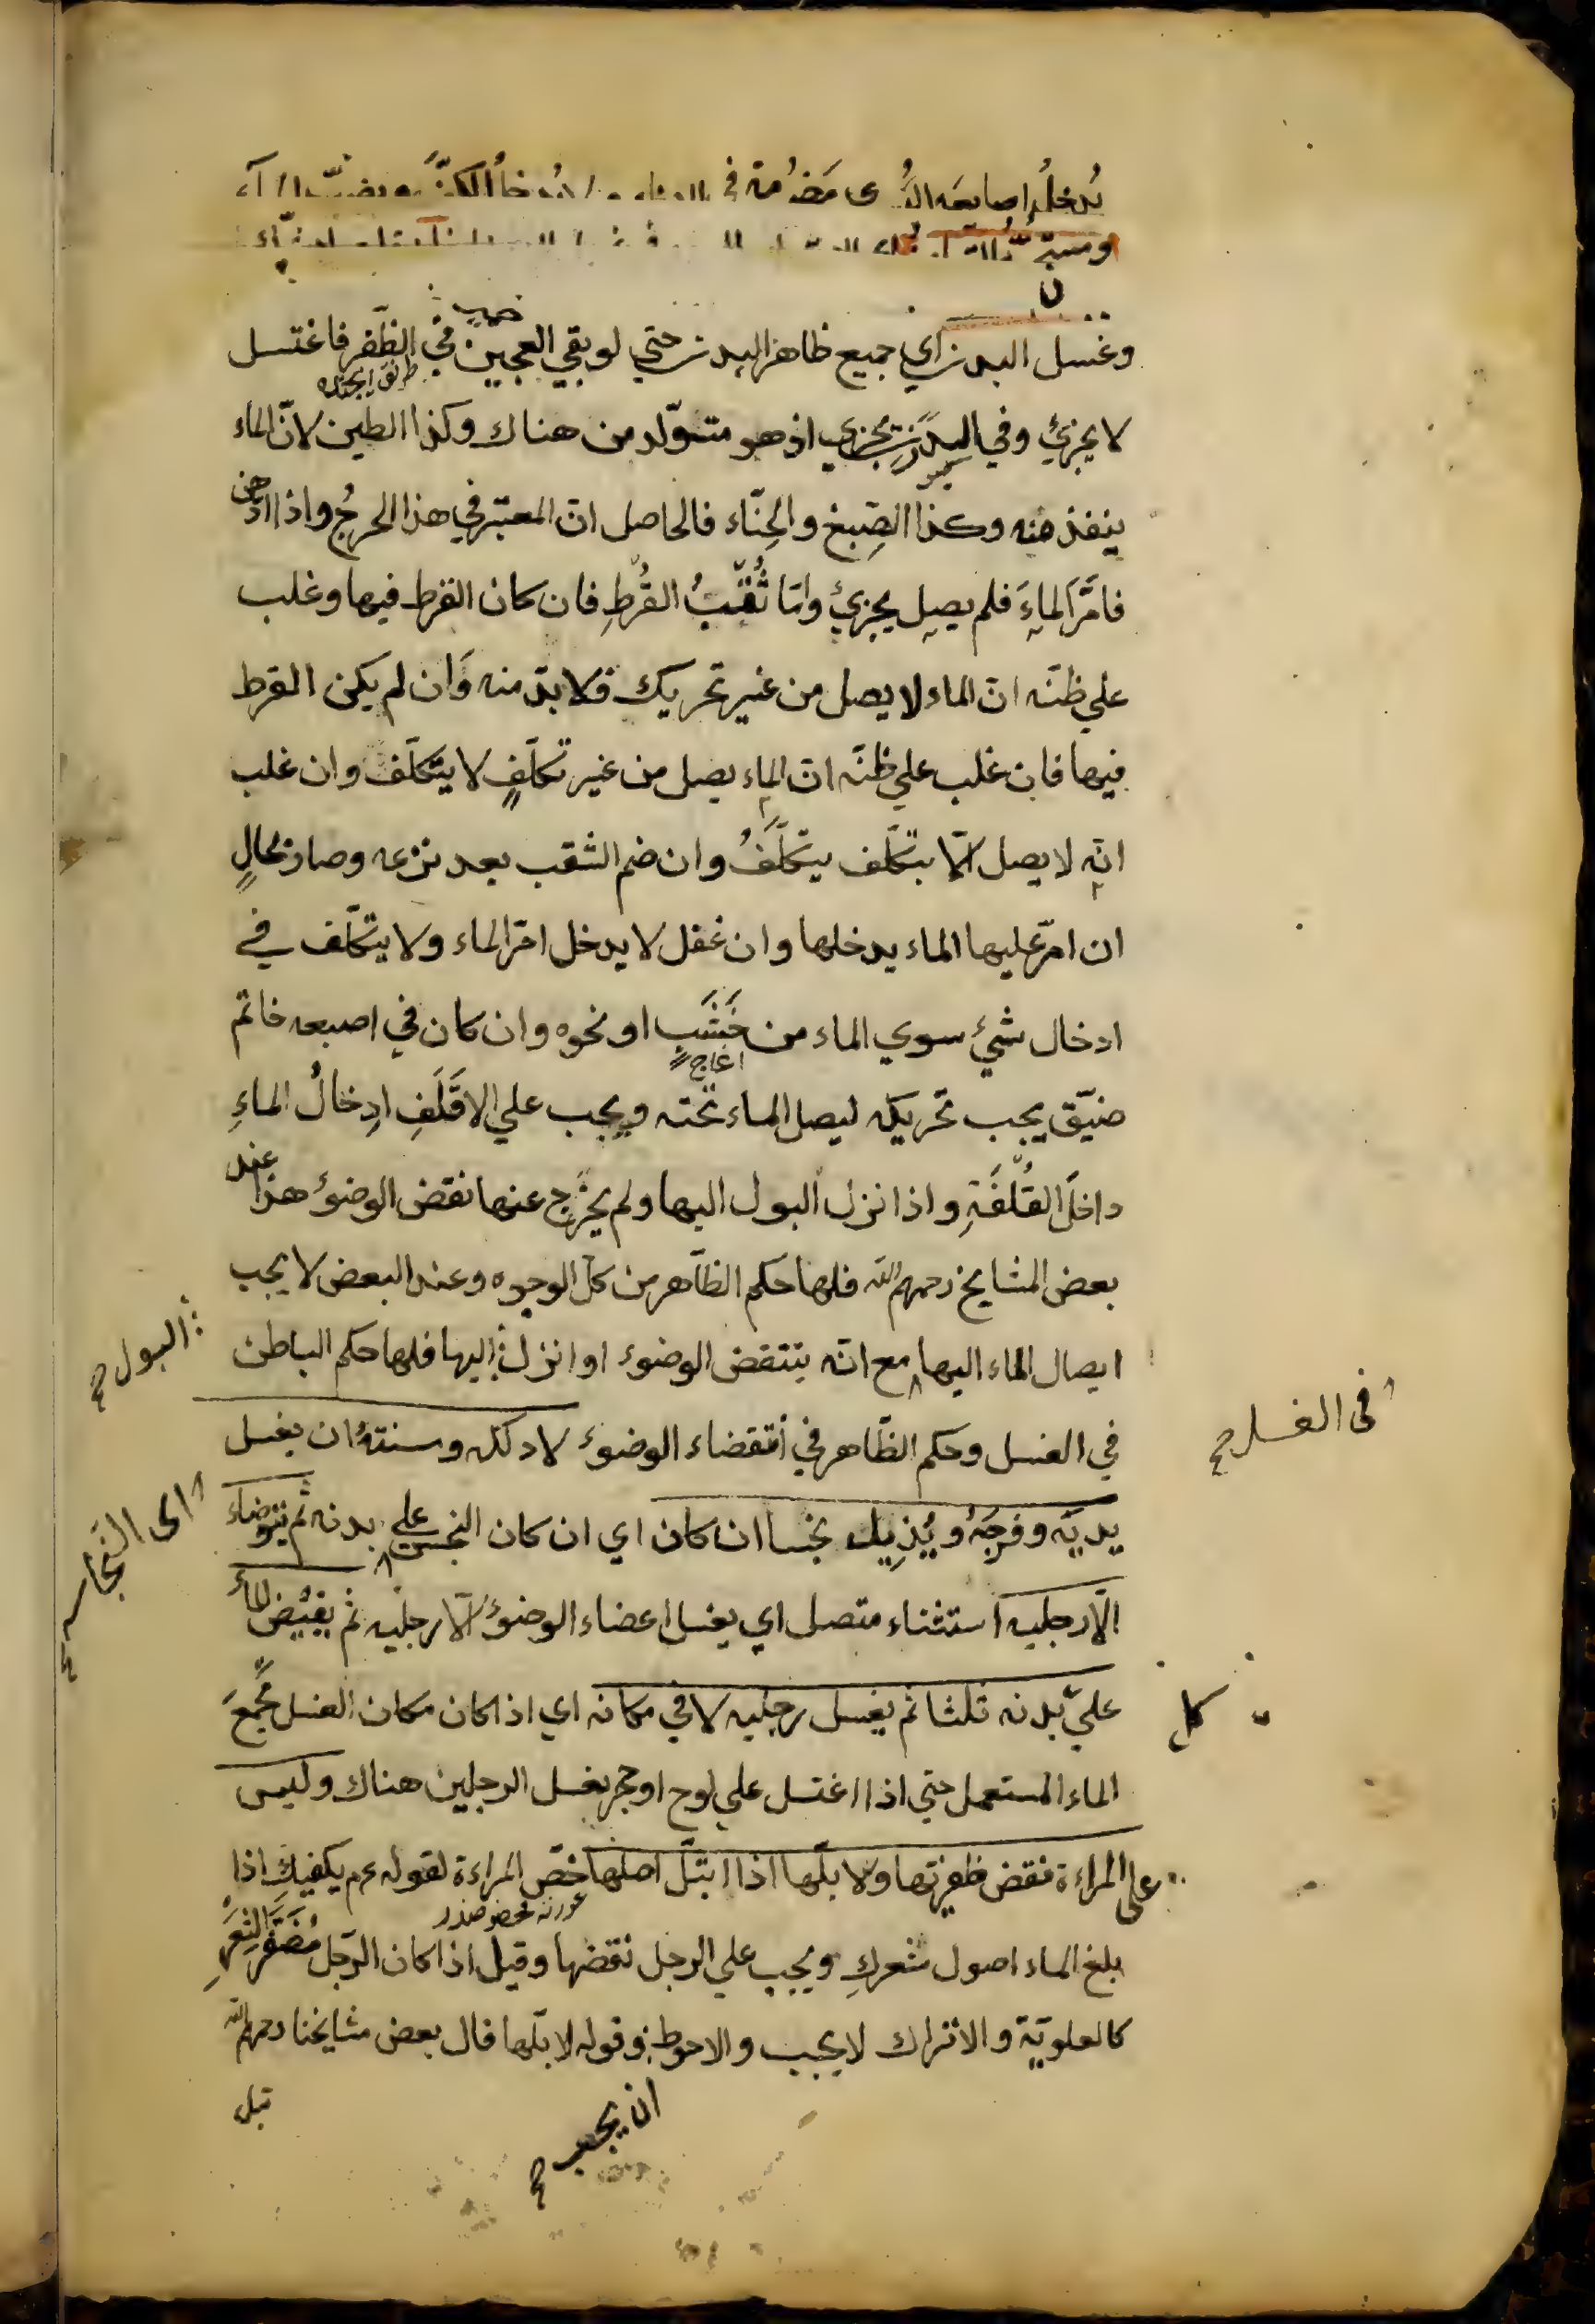 يُدخلُ اصابعه مَضمومة في
وغسل البدن اي جميع ظاهر البدن حتي لو بقي العجين في الظّفر فاغتسل
لا يجزئ وفي الدَرَنِ يجزي اذ هو متولّد من هناك وكذا الطين لانّ الماء
ينفذ منه وكذا الصِّبغ والحِنّاء فالحاصل انّ المعتبر في هذا الحرجُ واذا ادّهن
فامَرَّ الماءَ فلم يصل يجزئ وامّا ثُقْبُ القُرْطِ فان كان القرط فيها وغلب
علي ظنّه انّ الماء لا يصل من غير تحريك فلا بدّ منه وَان لم يكن القرط
فيها فان غلب علي ظنّه انّ الماء يصل من غير تكلّفٍ لا يتكلّف وان غلب
انّه لا يصل الّا بتكلّف يتكلّفُ وان ضم الثقب بعد نزعه وصار بحالٍ
ان امرّ عليها الماء يدخلها وان غفل لا يدخل امرّ الماء ولا يتكلّف في
ادخال شيئ سوي الماء من خَشَبٍ او نحوه وان كان في اصبعه خاتم
اغاج
ضيّق يجب تحريكه ليصل الماء تحته ويجب علي الاقلَفِ اِدخالُ الماءِ
داخلَ القُلْفَةِ واذا نزل البول اليها ولم يخرج عنها نقض الوضوءَ هذا عند
بعض المشايخ رحمهم الله فلها حكم الظّاهر من كلّ الوجوه وعند البعض لا يجب
ايصال الماء اليها مع انّه ينتقض الوضوء اذا نزل اليها فلها حكم الباطن
: البول صح
في الغسل صح
في الغسل وحكم الظّاهر في انتقضاء الوضوء لا دلكه وسنته ان يغسل
يديه وفرجَهُ ويُزيل نجسا ان كان اي ان كان النجس علي بدنه ثم يتوضاء
اى النجاسه صح
الّا رجليه استثناء متصل اي يغسل اعضاء الوضوء الّا رجليه ثم يفيض الماء
علي بدنه ثلثا ثم يغسل رجليه لا في مكانه اي اذا كان مكان الغسل مجمعَ
كل
الماء المستعمل حتي اذا اغتسل علي لوح او حجر يغسل الرجلين هناك وليس
على المراءة نقض ظفيرتها ولا بلّها اذا ابتلّ اصلها خصّ المراءة لقوله عم يكفيكِ اذا
بلغ الماء اصول شعركِ ويجب علي الرجل نقضها وقيل اذا كان الرّجل مُضَفَّرَ الشَّعْرِ
كالعلويّة والاتراك لا يجب والاحوط وقوله لا بلّها قال بعض مشايخنا رحمهم الله
ان يجب صح
تبل